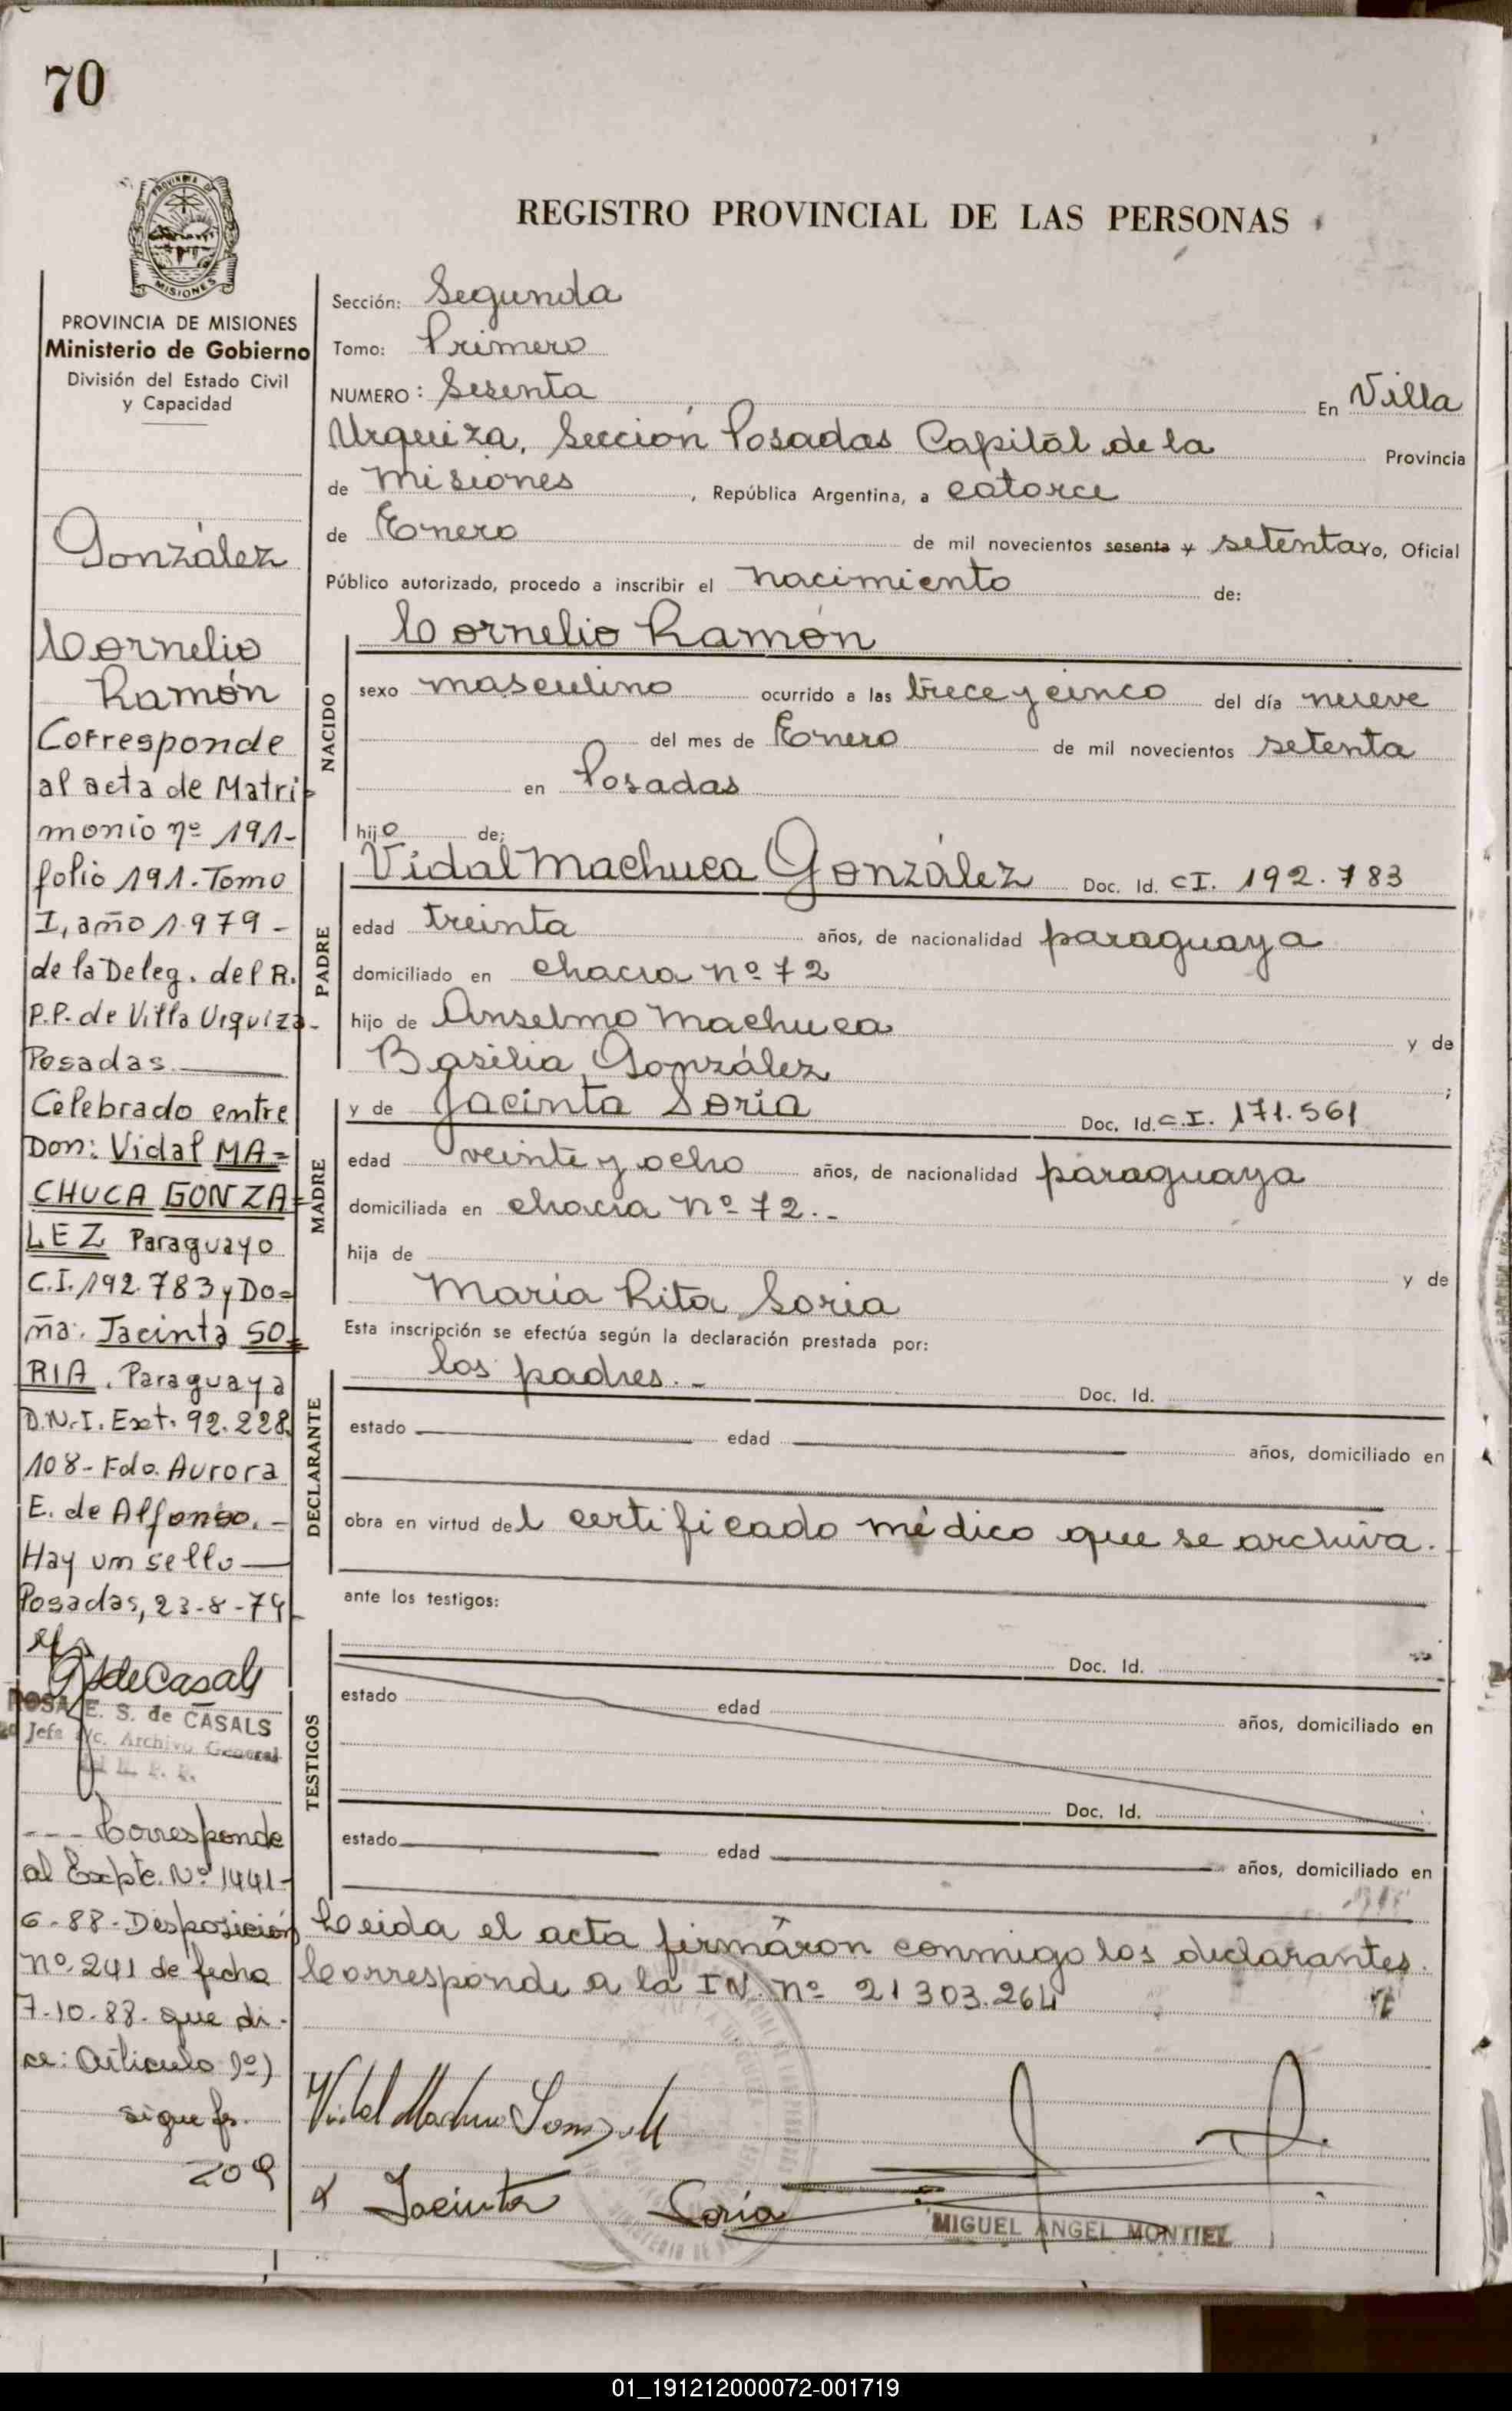 70
PROVINCIA DE
MISIONES
REGISTRO PROVINCIAL DE LAS PERSONAS
PROVINCIA DE MISIONES
Ministerio de Gobierno
División del Estado Civil
y Capacidad
González
Cornelio
Ramón
Corresponde
al acta de Matri-
monio nº 191-
folio 191. Tomo
I, año 1979-
de la Deleg. del R.
P.P. de Villa Urquiza-
Posadas.
Celebrado entre
Don: Vidal MA=
CHUCA GONZA=
LEZ Paraguayo
C.I. 192.783 y Do=
ña: Jacinta SO=
RIA. Paraguaya
D.N.I. Ext. 92.228.
108- Fdo. Aurora
E. de Alfonso.-
Hay un sello
Posadas, 23-8-79
ROSA E. S. de CASALS
Jefe Archivo General
--- Corresponde
al Expte. Nº 1441-
6-88- Disposición
nº 241 de fecha
7-10-88- que di-
ce: Artículo 1º)
sigue fs.
209
Sección: Segunda
Tomo: Primero
NUMERO: Sesenta En Villa
Urquiza, Sección Posadas Capital de la Provincia
de Misiones, República Argentina, a catorce
de Enero de mil novecientos sesenta y setenta yo, Oficial
Público autorizado, procedo a inscribir el nacimiento de:
NACIDO
Cornelio Ramón
sexo masculino ocurrido a las trece y cinco del día nueve
del mes de Enero de mil novecientos setenta
en Posadas
hijo de:
PADRE
Vidal Machuca González Doc. Id. CI. 192.783
edad treinta años, de nacionalidad paraguaya
domiciliado en chacra nº 72
hijo de Anselmo Machuca y de
Basilia González ;
MADRE
y de Jacinta Soria Doc. Id. C.I. 171.561
edad veinte y ocho años, de nacionalidad paraguaya
domiciliada en chacra nº 72.-
hija de y de
María Rita Soria
Esta inscripción se efectúa según la declaración prestada por:
DECLARANTE
los padres.- Doc. Id.
estado edad años, domiciliado en
obra en virtud del certificado médico que se archiva.
ante los testigos:
TESTIGOS
Doc. Id.
estado edad años, domiciliado en
Doc. Id.
estado edad años, domiciliado en
Leida el acta firmáron conmigo los declarantes.
Corresponde a la IN. nº 21303.264
Vidal Machuca Gonzalez
x Jacinta Soria
MIGUEL ANGEL MONTIEL
01_191212000072-001719